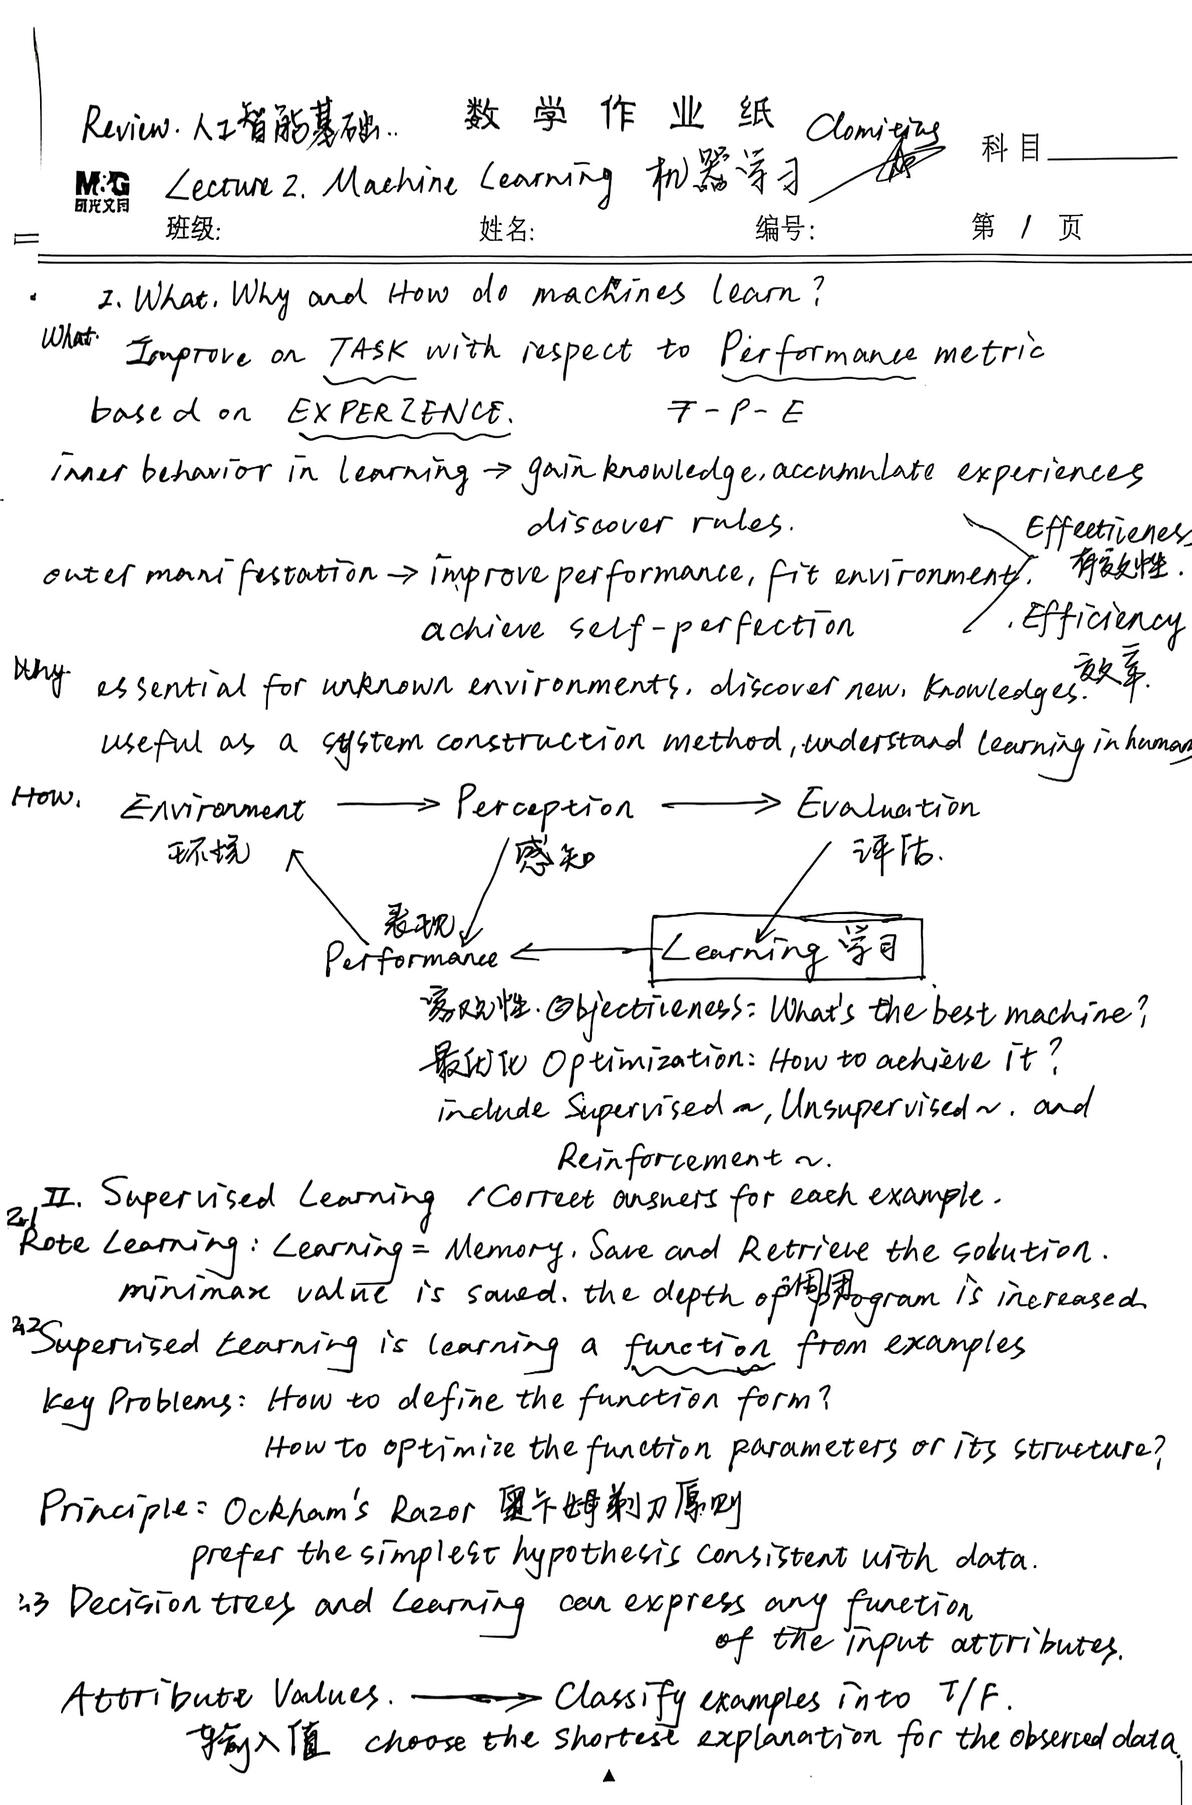 数学作业纸
Review. 人工智能基础..
科目
M&G 晨光文具
Lecture 2. Machine Learning 机器学习
班级: 姓名: 编号: 第 1 页
I. What. Why and How do machines learn?
What. Improve on TASK with respect to Performance metric
based on EXPERIENCE. T-P-E
inner behavior in learning → gain knowledge, accumulate experiences
discover rules.
Effectiveness
有效性.
outer manifestation → improve performance, fit environment.
achieve self-perfection
Efficiency
效率.
Why essential for unknown environments. discover new. knowledges.
useful as a system construction method, understand learning in human
How. Environment → Perception → Evaluation
环境 感知 评估.
表现
Performance ← Learning 学习
客观性. Objectiveness: What's the best machine?
最优化 Optimization: How to achieve it?
include Supervised ~, Unsupervised ~. and
Reinforcement ~.
II. Supervised Learning / Correct answers for each example.
2.1 Rote Learning: Learning = Memory. Save and Retrieve the solution.
minimax value is saved. the depth of program is increased
2.2 Supervised Learning is learning a function from examples
Key Problems: How to define the function form?
How to optimize the function parameters or its structure?
Principle: Ockham's Razor 奥卡姆剃刀原则
prefer the simplest hypothesis consistent with data.
2.3 Decision trees and Learning can express any function
of the input attributes.
Attribute Values. → Classify examples into T/F.
输入值 choose the shortest explanation for the observed data.